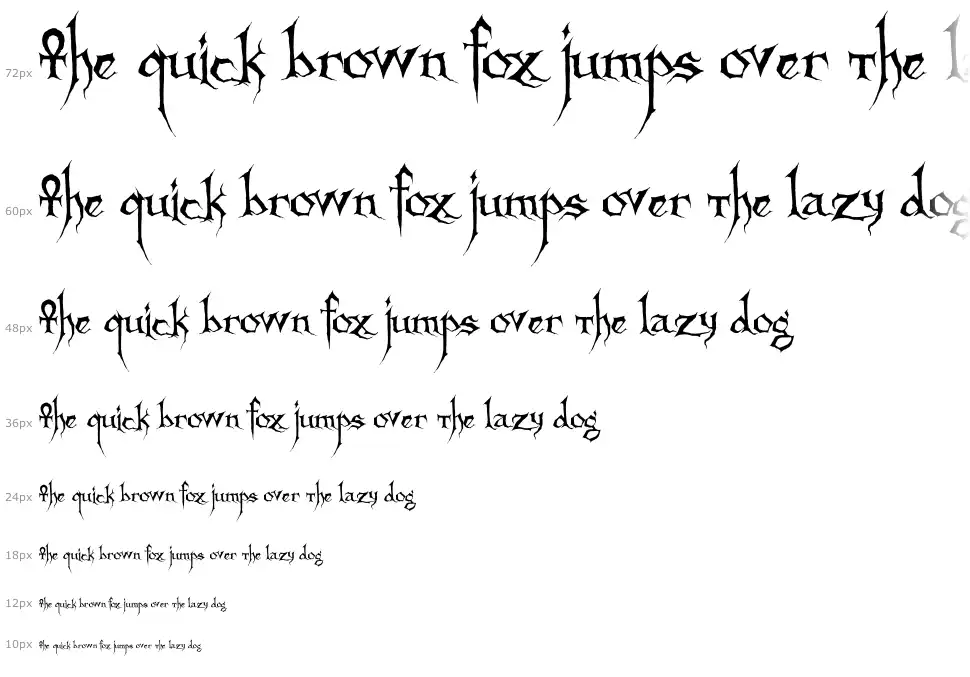 72px The quick brown fox jumps over the
60px The quick brown fox jumps over the lazy dog
48px The quick brown fox jumps over the lazy dog
36px The quick brown fox jumps over the lazy dog
24px The quick brown fox jumps over the lazy dog
18px The quick brown fox jumps over the lazy dog
12px The quick brown fox jumps over the lazy dog
10px The quick brown fox jumps over the lazy dog